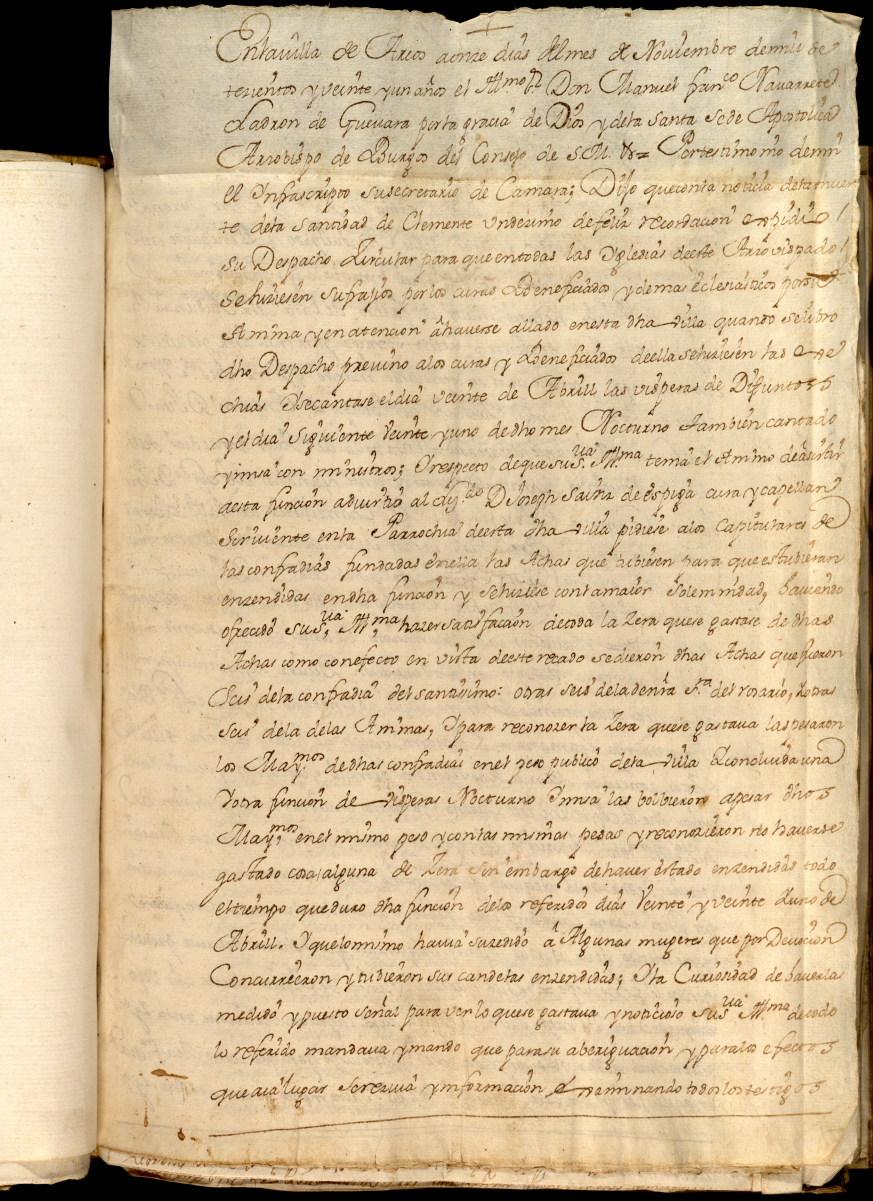 En la villa de Arcos a onze dias del mes de Noviembre de mil se
tezientos y veinte y un años el Illmo Sr Don Manuel Franco Navarrete
Ladron de Guevara por la gracia de Dios y de la Santa Sede Apostolica
Arzobispo de Burgos del Consejo de S.M. &= Por testimonio de mi
el Infrascripto su secretario de Camara; Dijo que con la noticia de la muer
te de la santidad de Clemente Undezimo de feliz recordacion expidio
su Despacho Zircular para que en todas las Yglesias de este Arzovispado
se hiziesen sufrajios por los curas Beneficiados y demas eclesiasticos por su
Anima y en atencion â haverse allado en esta dha villa quando se libro
dho Despacho previno a los curas y Beneficiados de ella se hiziesen las exe
chias Y se cantase el dia veinte de Abrill las visperas de Difuntos
y el dia siguiente veinte y uno de dho mes Nocturno tambien cantado
y misa con ministros; Y respecto de que su Sua Illma tenia el Animo de asistir
a esta funcion advirtio al Lizdo D Joseph Sainz de Espiga cura y capellan
Sirviente en la Parrochia de esta dha villa pidiese a los Capitulares de
las confradias fundadas en ella las Achas que tubiesen para que estubieran
enzendidas en dha funcion y se hiziese con la maior solemnidad, haviendo
ofrecido su Sua Illma hazer satisfacion de toda la Zera que se gastase de dhas
Achas como con efecto en vista de este recado se dieron dhas Achas que fueron
Seis de la confradia del santissimo: otras seis de la de nra Sra del rosario, y otras
seis de la de las Animas, Y para reconozer la Zera que se gastava las pesaron
los Maymos de dhas confradias en el peso publico de la villa y concluida una
Y otra funcion de visperas Nocturno Y misa las bolbieron a pesar dhos
Maymos en el mismo peso y con las mismas pesas y reconozieron no haverse
gastado cosa alguna de Zera sin embargo de haver estado enzendidas todo
el tiempo que duro dha funcion de los referidos dias veinte y veinte y uno de
Abrill. Y que lo mismo havia suzedido â Algunas mugeres que por Devocion
Concurrieron y tubieron sus candelas enzendidas; Y la Curiosidad de haverlas
medido y puesto señal para ver lo que se gastava y noticioso su Sua Illma de todo
lo referido mandava y mando que para su aberiguacion y para los efectos
que aia lugar se reziva Ynformacion examinando todos los testigos